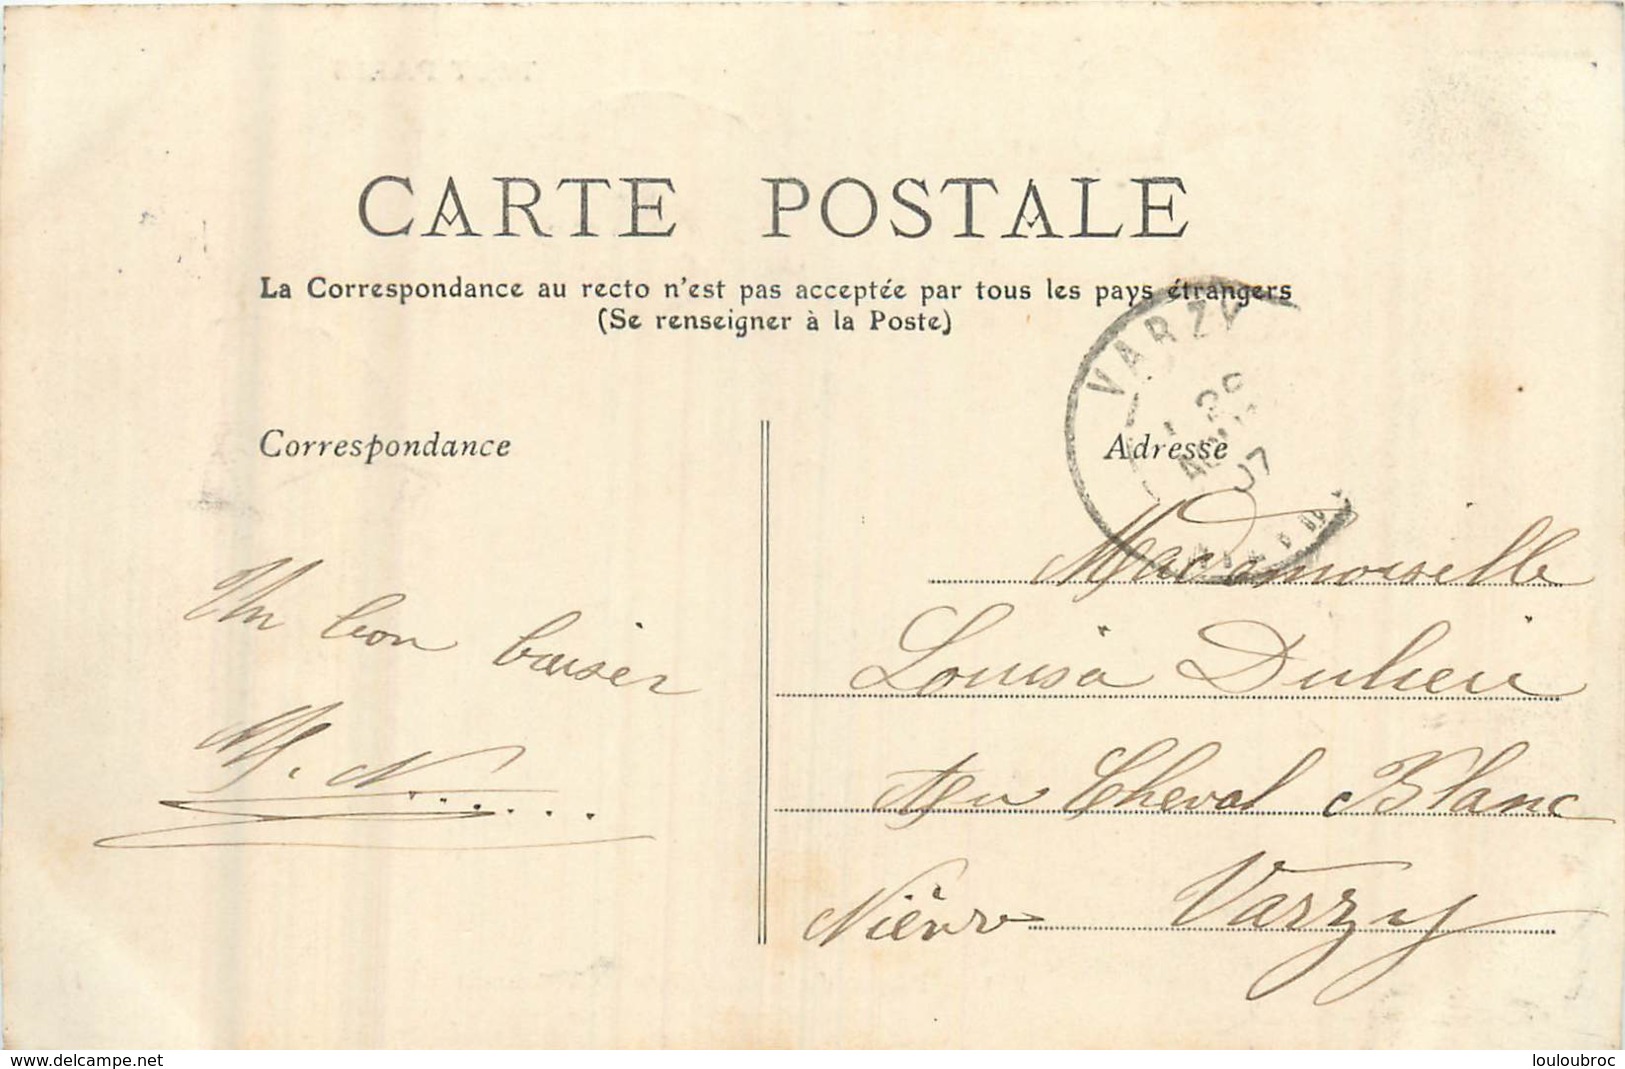 CARTE POSTALE
La Correspondance au recto n'est pas acceptée par tous les pays étrangers
(Se renseigner à la Poste)
Correspondance
Un bon baiser
M. N. . . . . . .
Adresse
VARZY
07
Mademoiselle
Louisa Dulieu
Au Cheval Blanc
Nièvre Varzy
www.delcampe.net
louloubroc